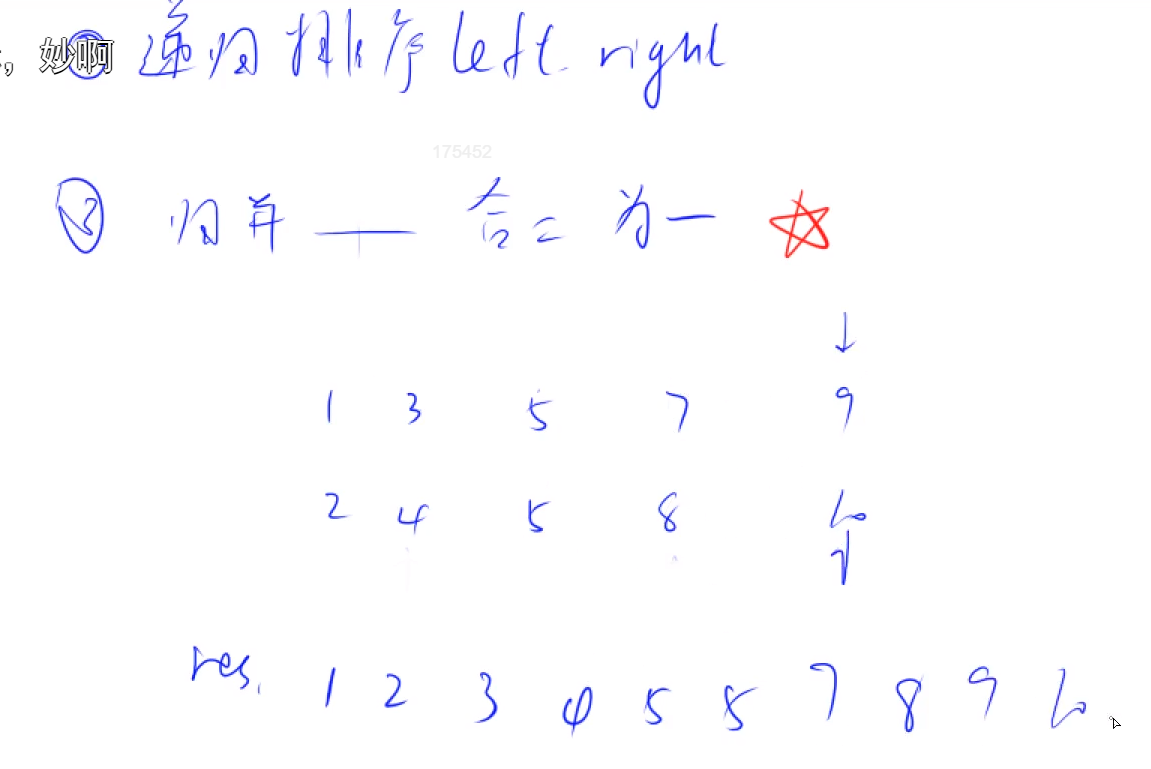 ，妙啊 ② 递归排序 left. right
175452
③ 归并 — 合二为一 ☆
↓
1 3 5 7 9
2 4 5 8 10
↑
res. 1 2 3 4 5 5 7 8 9 10